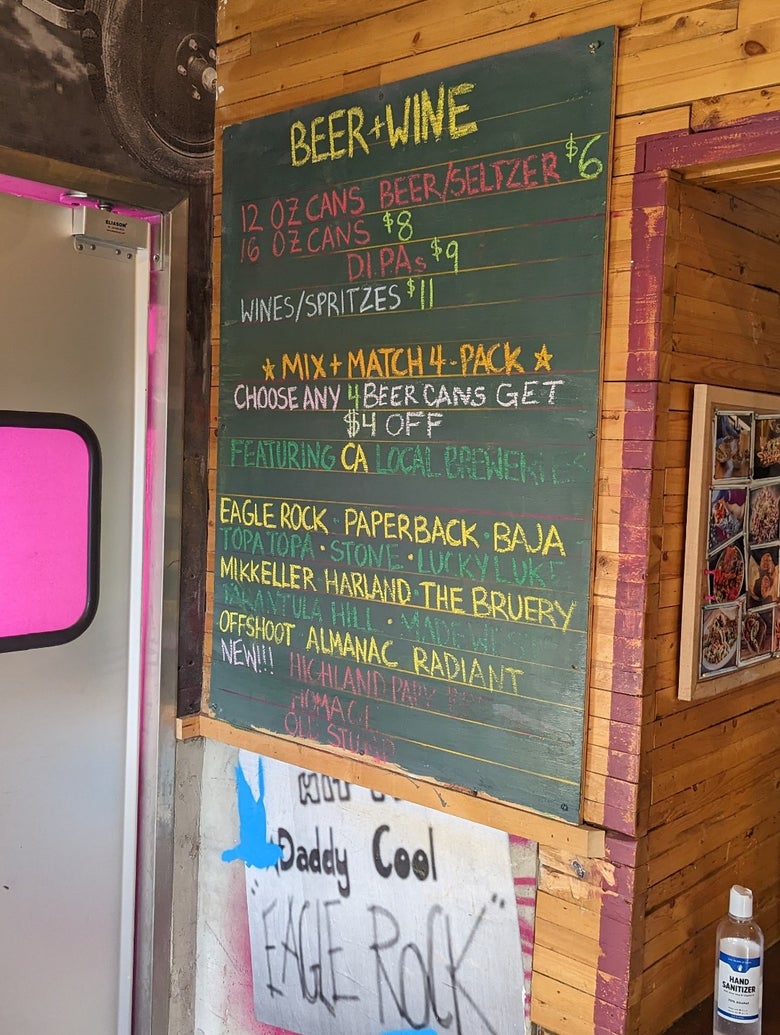 ELIASON
BEER+WINE
12 OZ CANS BEER/SELTZER $6
16 OZ CANS $8
DIPAs $9
WINES/SPRITZES $11
★ MIX+MATCH 4-PACK ★
CHOOSE ANY 4 BEER CANS GET
$4 OFF
FEATURING CA LOCAL BREWERIES
EAGLE ROCK · PAPERBACK · BAJA
TOPA TOPA · STONE · LUCKY LUKE
MIKKELLER HARLAND · THE BRUERY
TARANTULA HILL · MADE WEST
OFFSHOOT ALMANAC RADIANT
NEW!!! HIGHLAND PARK
OLD STUMP
Daddy Cool
"EAGLE ROCK"
HAND
SANITIZER